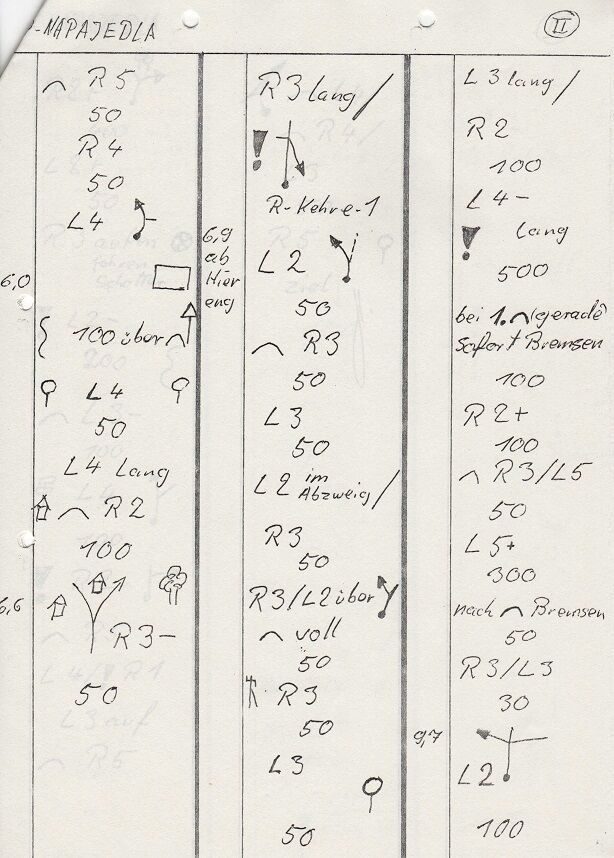 -NAPAJEDLA
II
R5
50
R4
50
L4
6,0
100 über
L4
50
L4 Lang
R2
100
6,6
R3-
50
R3 lang/
!
R-Kehre-1
6,9
ab
Hier
eng
L2
50
R3
50
L3
50
L2 im
Abzweig/
R3
50
R3/L2 über
voll
50
R3
50
L3
50
L3 lang/
R2
100
L4-
! lang
500
bei 1. (gerade)
Sofort Bremsen
100
R2+
100
R3/L5
50
L5+
300
nach Bremsen
50
R3/L3
30
9,7
L2
100